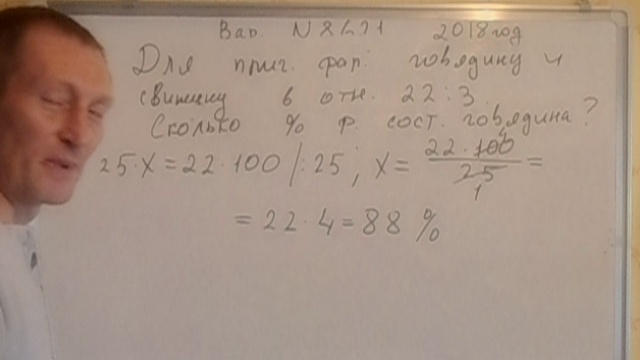 Вар. 2018 год
Для приг. фар. говядину и
свинину в отн. 22:3.
Сколько % ф. сост. говядина?
25·x=22·100 /:25; x= 22·100 / 25 =
=22·4=88 %